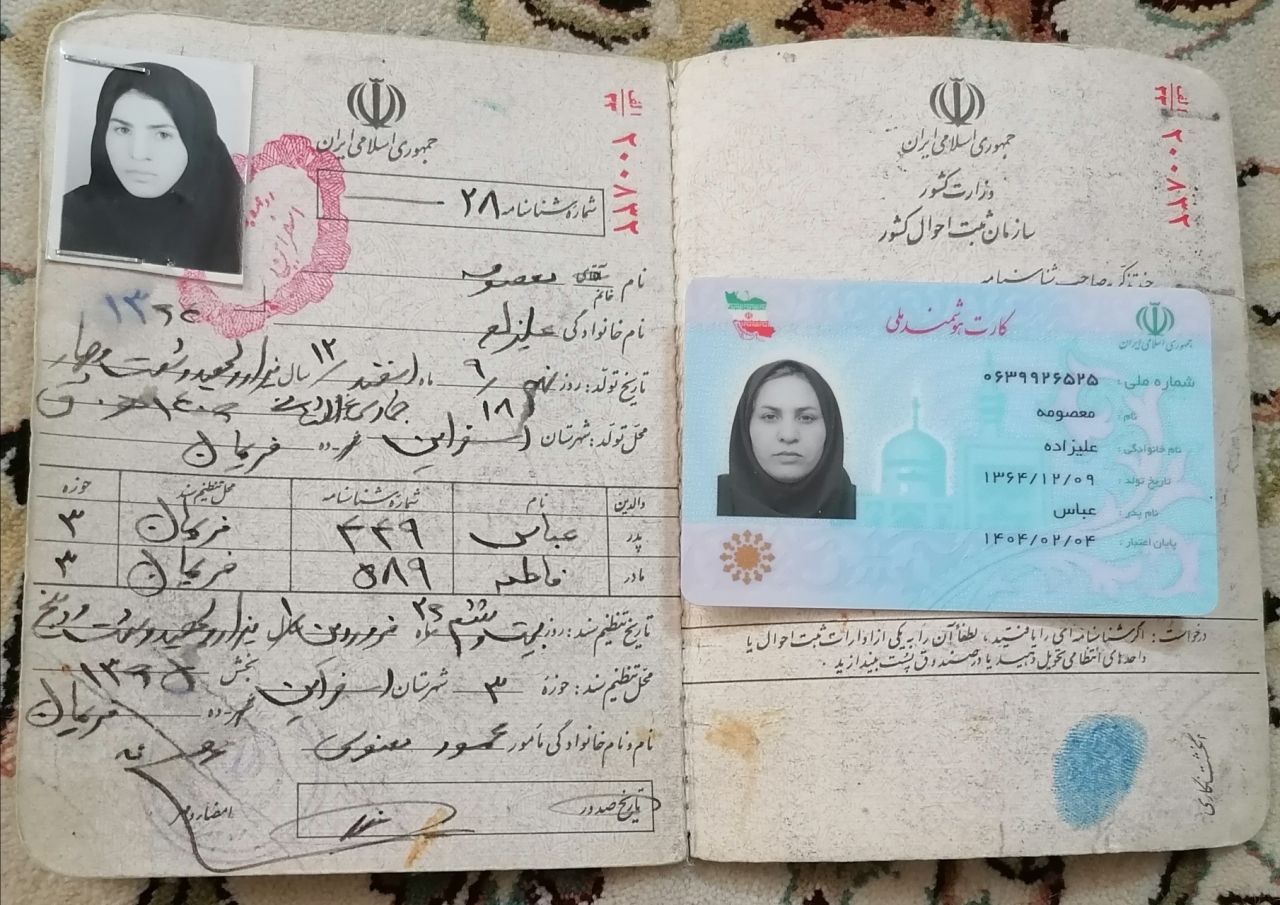 جمهوری اسلامی ایران
الف
۲۳
۲۰۰۸۳۲
شماره شناسنامه ۲۸
نام آقای خانم معصومه
نام خانوادگی علیزاده
تاریخ تولد: روز نهم ۹ ماه اسفند ۱۲ سال هزار و سیصد و شصت و چهار
۱۸
محل تولد: شهرستان اسفراین ده فریمان
والدین نام شماره شناسنامه محل تنظیم سند حوزه
پدر عباس ۴۴۹ فریمان ۳
مادر فاطمه ۵۸۹ فریمان ۳
تاریخ تنظیم سند: روز بیست و ششم ۲۶ ماه فروردین سال هزار و سیصد و شصت و پنج
محل تنظیم سند: حوزه ۳ شهرستان اسفراین بخش
ده فریمان
نام و نام خانوادگی مأمور محمود
تاریخ صدور
امضا و مهر
جمهوری اسلامی ایران
وزارت کشور
سازمان ثبت احوال کشور
الف
۲۳
۲۰۰۸۳۲
صاحب شناسنامه
جمهوری اسلامی ایران
کارت هوشمند ملی
شماره ملی: ۰۶۳۹۹۲۶۵۲۵
نام: معصومه
نام خانوادگی: علیزاده
تاریخ تولد: ۱۳۶۴/۱۲/۰۹
نام پدر: عباس
پایان اعتبار: ۱۴۰۴/۰۲/۰۴
درخواست: اگر شناسنامه ای را یافتید، لطفاً آن را به یکی از ادارات ثبت احوال یا
واحدهای انتظامی تحویل دهید یا در صندوق پست بیندازید.
انگشت نگاری